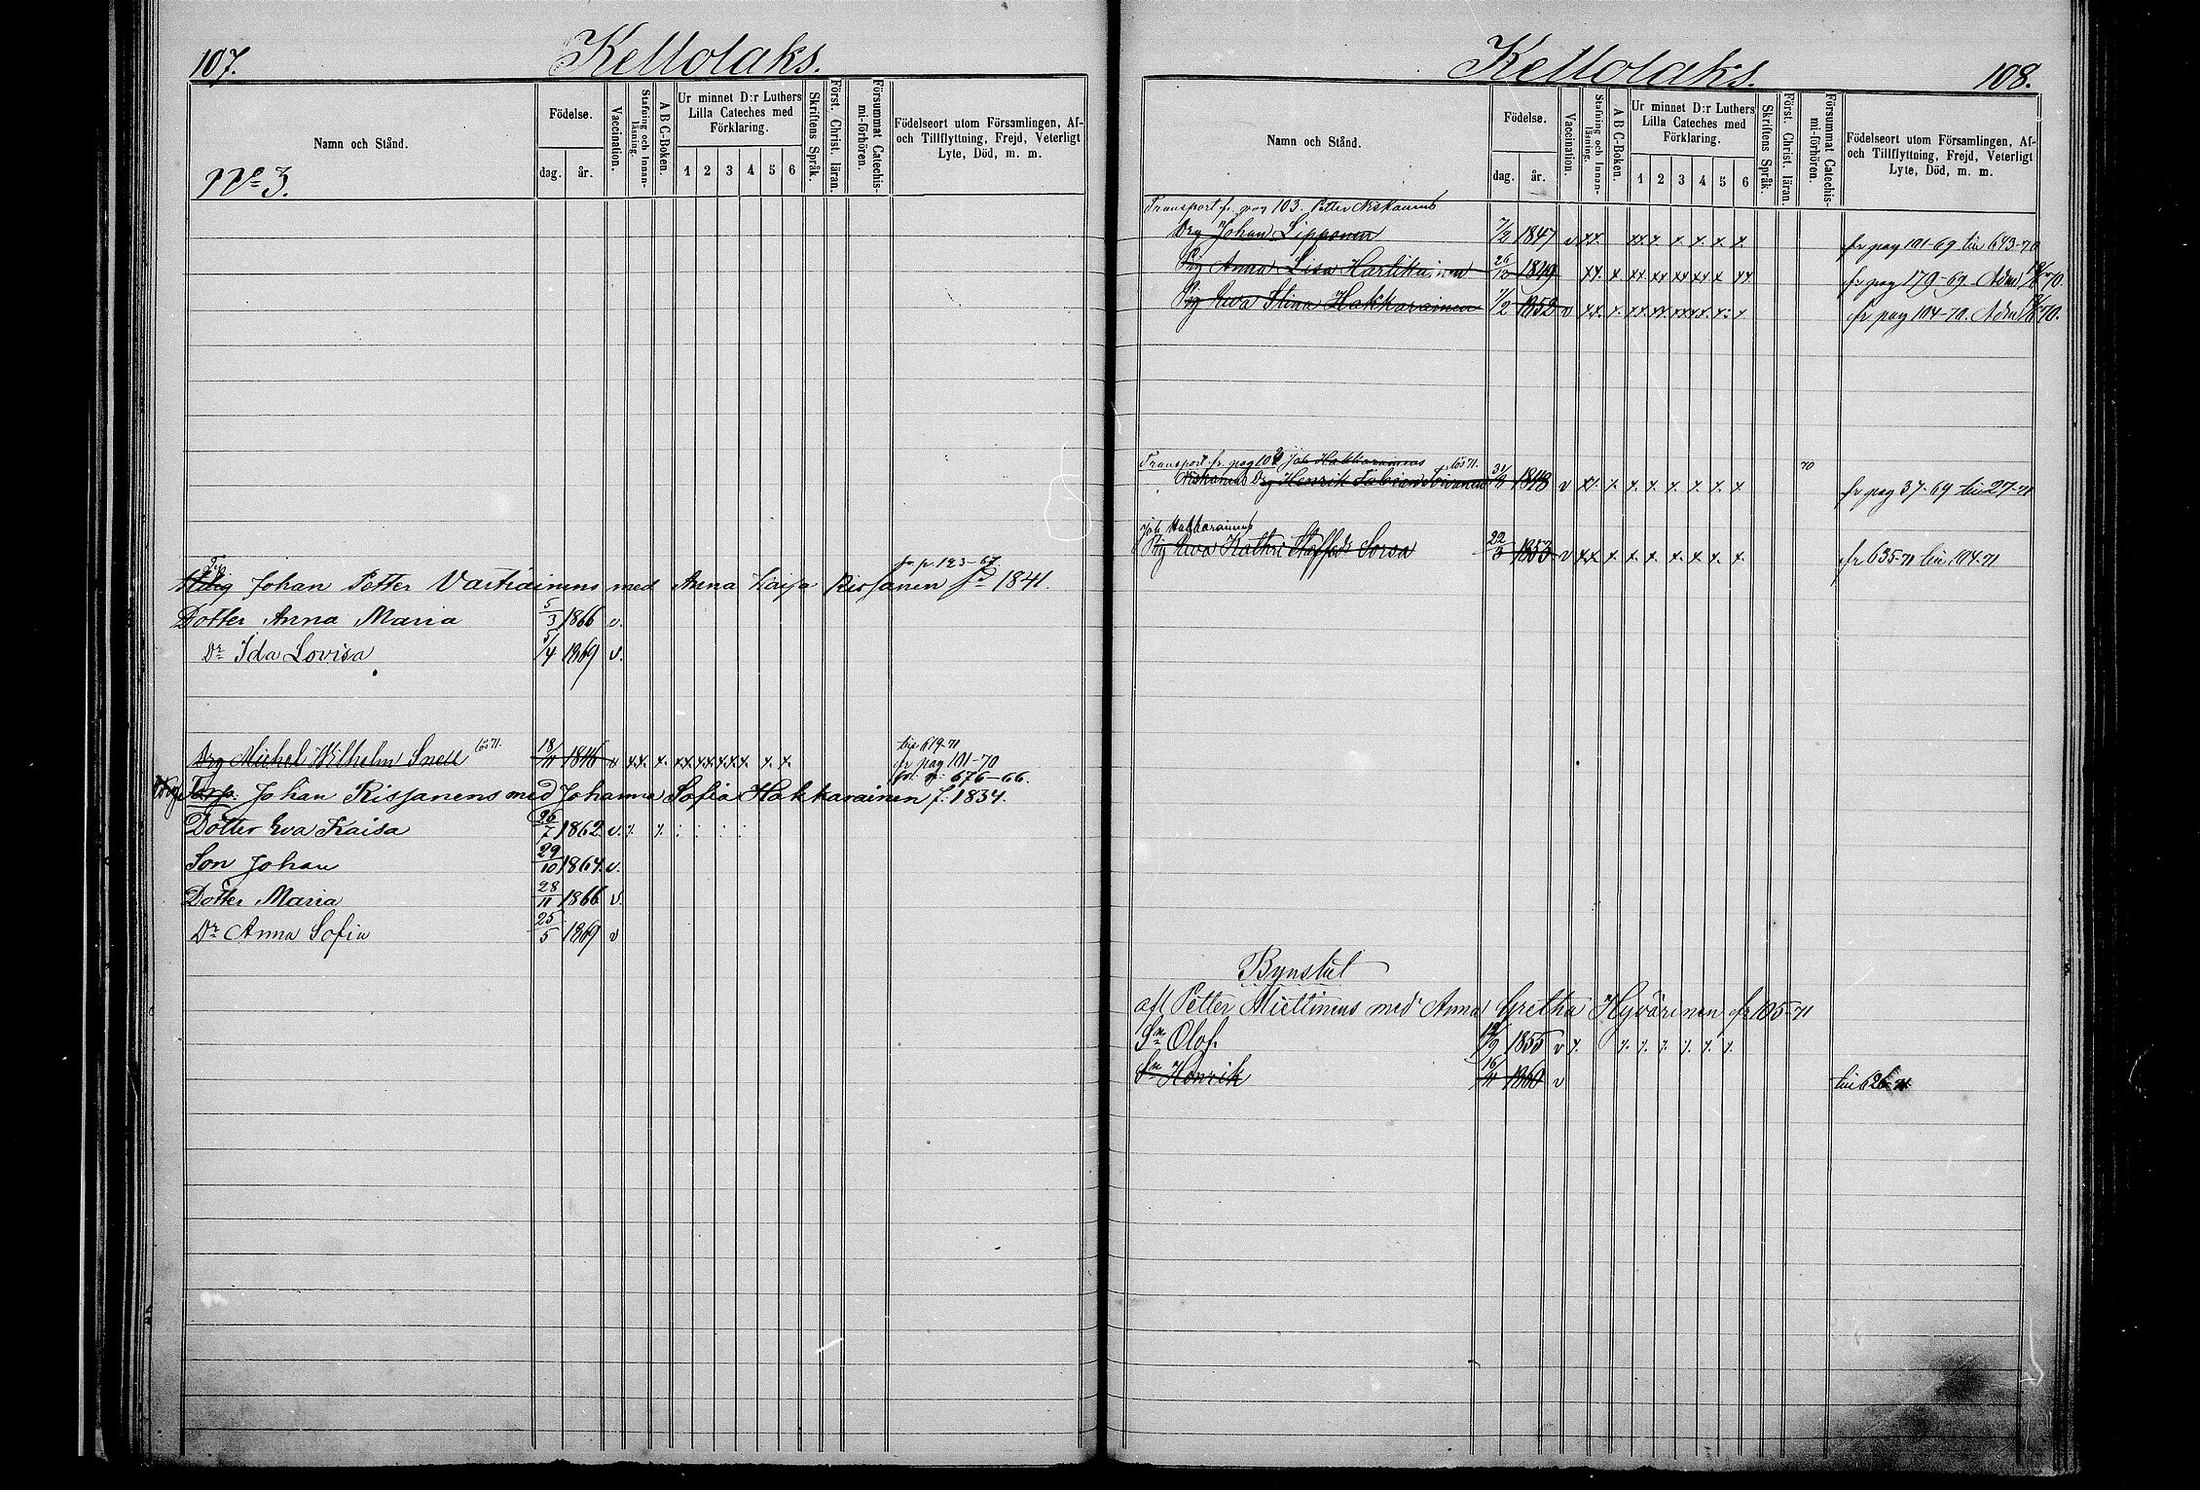 107.
Kellolaks.
Namn och Stånd.
Födelse.
dag. år.
Vaccination.
Stafning och Innanläsning.
A B C-Boken.
Ur minnet D:r Luthers
Lilla Cateches med
Förklaring.
1 2 3 4 5 6
Skriftens Språk.
Först. Christ. läran.
Försummat Catechismi-förhören.
Födelseort utom Församlingen, Af-
och Tillflyttning, Frejd, Veterligt
Lyte, Död, m. m.
No 3.
fr p. 123-67
Johan Petter Vartiainens med Anna Kaisa Rissanen fd 1841.
Dotter Anna Maria 5/3 1866 v.
Dr Ida Lovisa 5/4 1869 v.
Drg Michel Wilhelm Snell lös 71. 18/11 1846 v xx x. xx xx xx x x. x. till 619-71
fr pag 101-70
fr. p: 676-66.
Torp. Johan Rissanens med Johanna Sofia Hakkarainen f: 1834.
Dotter Eva Kaisa 26/7 1862 v.
Son Johan 29/10 1864. v.
Dotter Maria 28/11 1866 v.
Dr Anna Sofia 25/5 1869 v
Kellolaks.
108.
Namn och Stånd.
Födelse.
dag. år.
Vaccination.
Stafning och Innanläsning.
A B C-Boken.
Ur minnet D:r Luthers
Lilla Cateches med
Förklaring.
1 2 3 4 5 6
Skriftens Språk.
Först. Christ. läran.
Försummat Catechismi-förhören.
Födelseort utom Församlingen, Af-
och Tillflyttning, Frejd, Veterligt
Lyte, Död, m. m.
Transport fr. pag 103. Petter Niskanens
Drg Johan Lipponen 7/2 1847 v xx. xx x x. x. x. x fr pag 101-69 till 693-70
Pig Anna Lisa Hartikainen 26/10 1849 xx. x xx xx xx xx x xx fr pag 179-69.
Pig Eva Stina Hakkarainen 7/2 1852 v xx. x. fr pag 104-70.
Transport fr. pag 103 Joh Hakkarainens lös 71. 70
Niskanens Drg Henrik Fabian Toivanen 1848 v xx. x x. x. x. x. x. x fr pag 37-69 till 27-71
Joh Hakkarainens
Pig Eva Kathri Staffsdr Sorsa 22/3 1853 v xx x. x. x. x. x. x. x. fr 635-71 till 104-71
Bynstul
Petter Miettinens med Anna Gretha Hyvärinen fr 105-71
Sn Olof. 1855 v x. x. x. x. x. x. x.
Sn Henrik 16/11 1860 v till 626-71